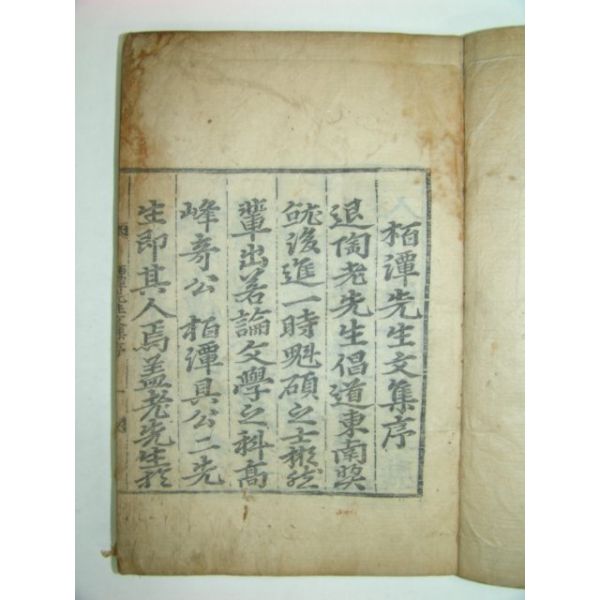 栢潭先生文集序
退陶老先生倡道東南奬
後進一時魁碩之士彬彬
輩出若論文學之科高
峰奇公 栢潭具公二先
生即其人焉盖老先生於